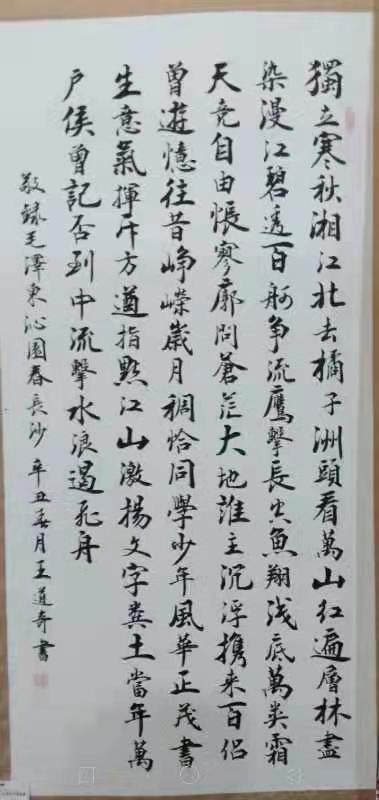 獨立寒秋湘江北去橘子洲頭看萬山红遍層林盡
染漫江碧透百舸争流鷹擊長空魚翔浅底萬类霜
天竞自由悵寥廓問蒼茫大地誰主沉浮携来百侣
曾遊憶往昔峥嵘歲月稠恰同學少年風華正茂書
生意氣揮斥方遒指點江山激揚文字糞土當年萬
户侯曾記否到中流擊水浪遏飛舟
敬録毛澤東沁園春長沙 辛丑春月王道奇書